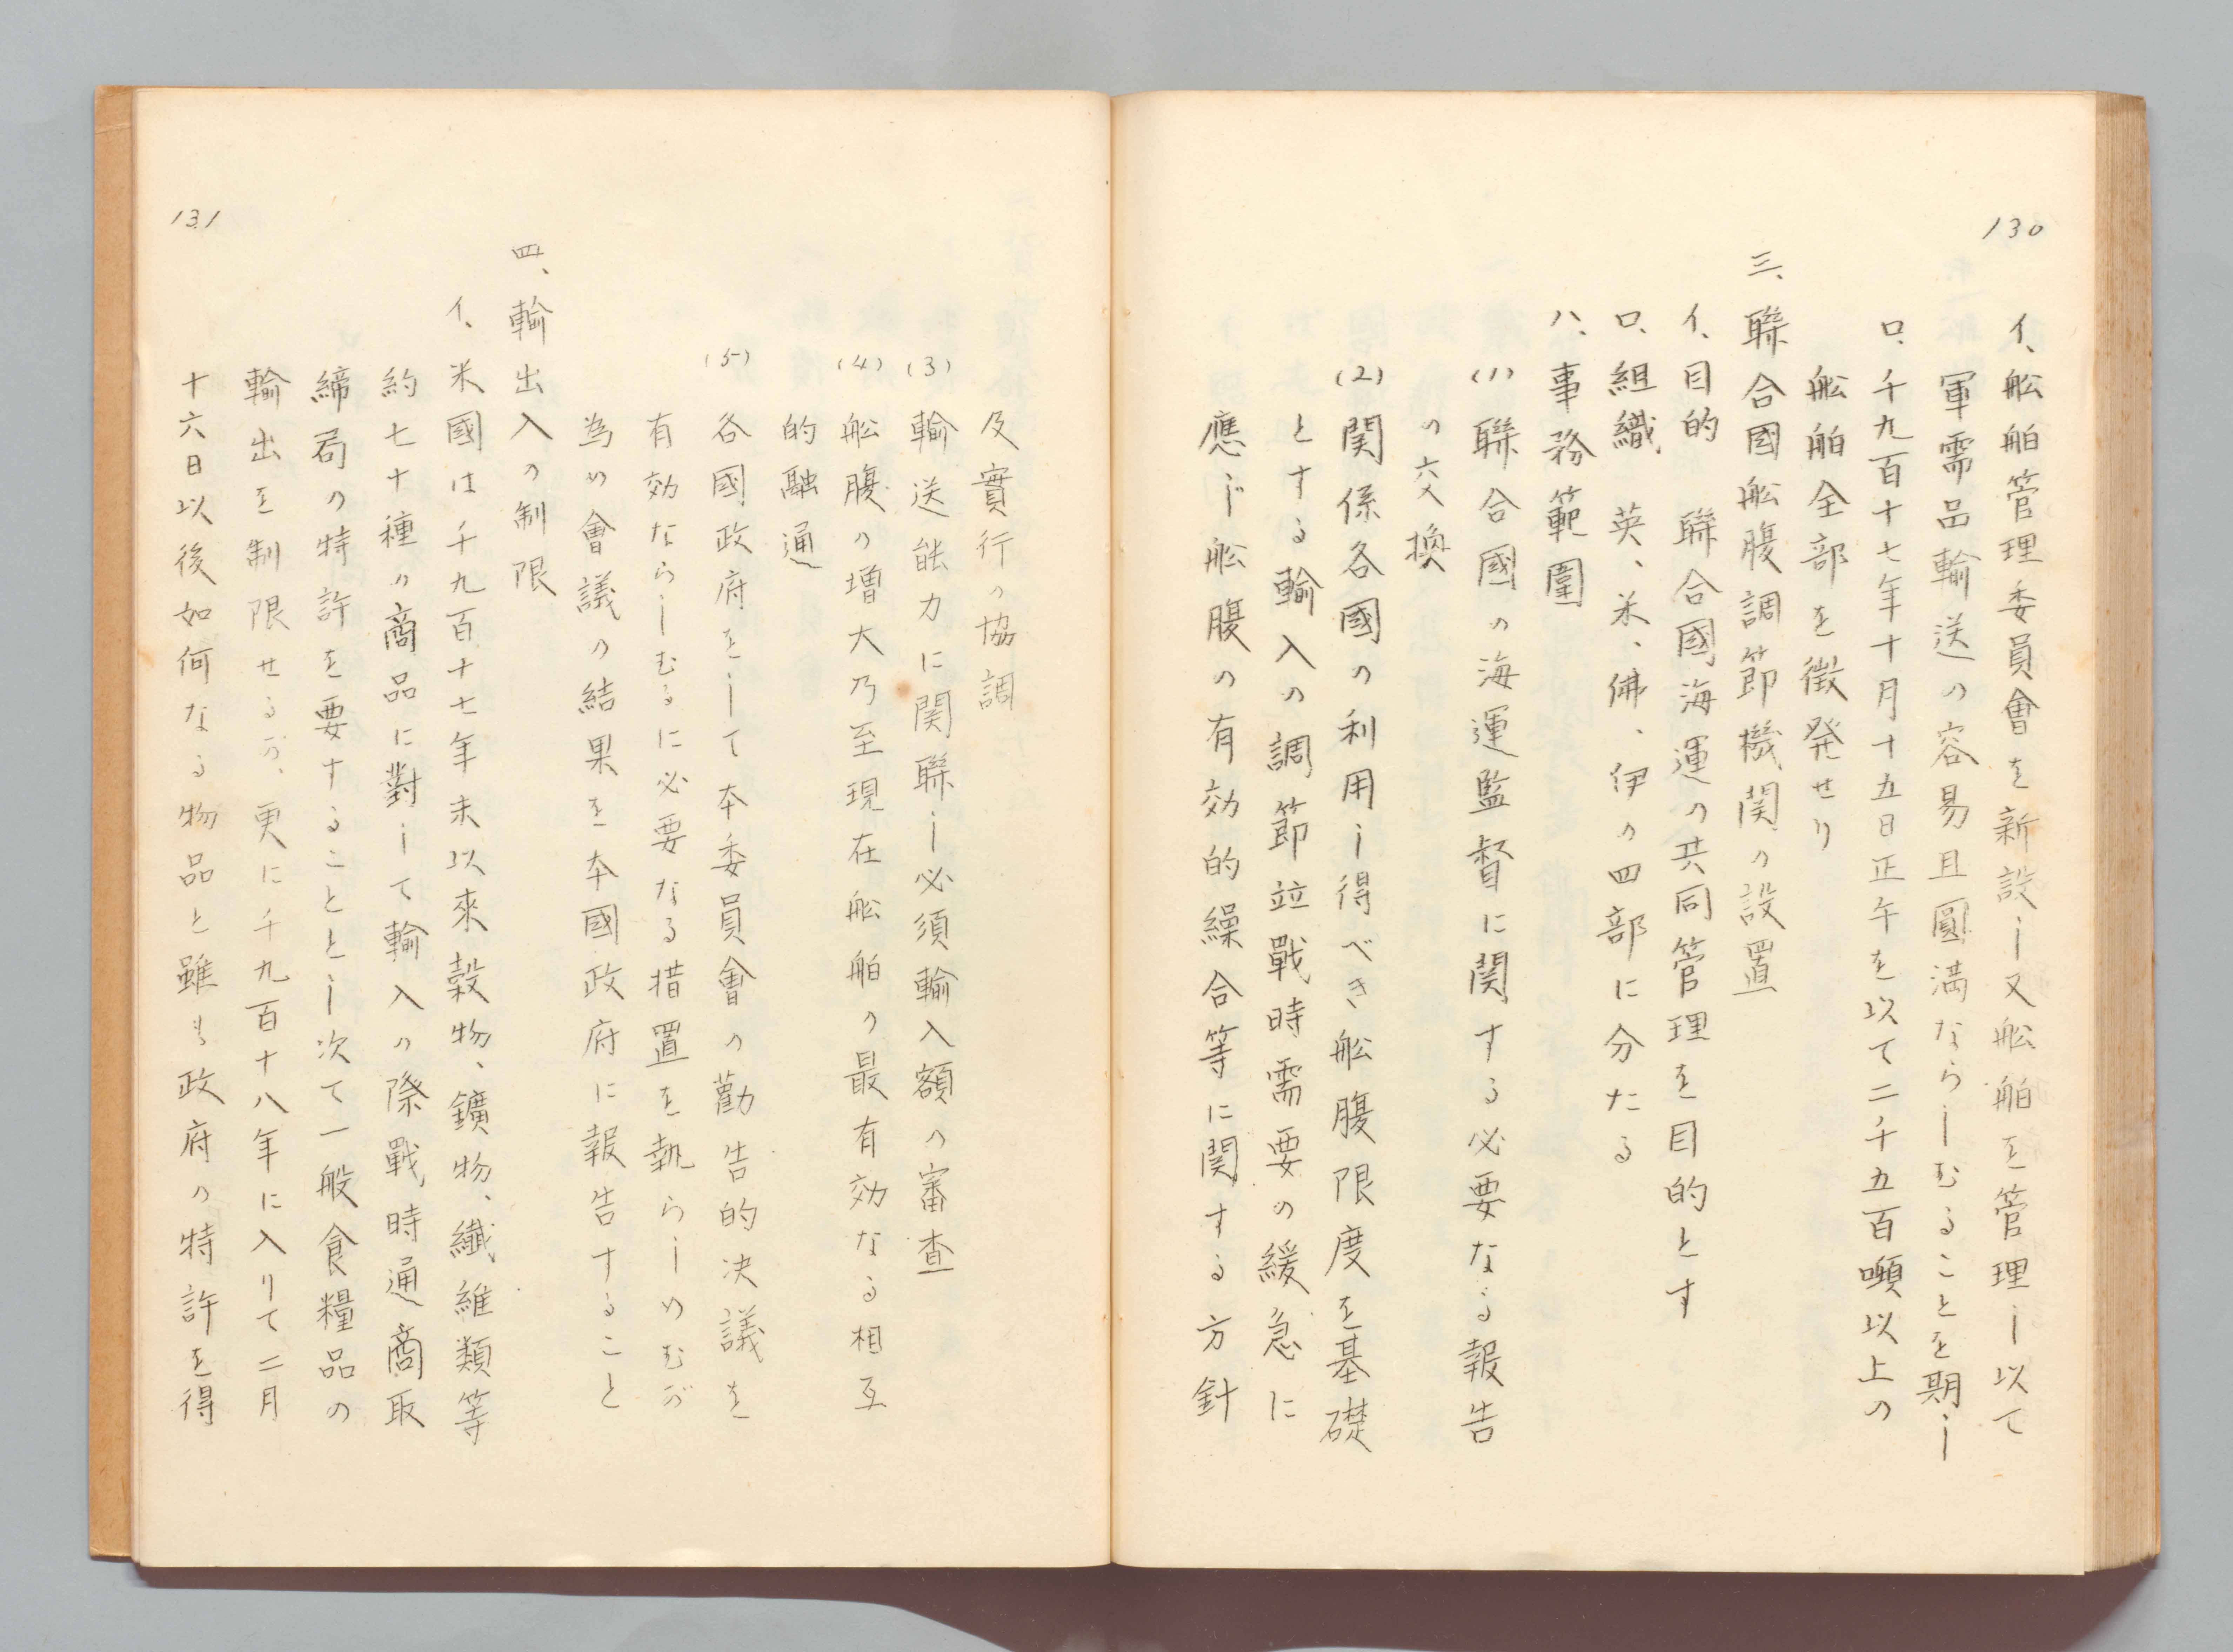 130
イ、舩舶管理委員會を新設し又舩舶を管理し以て
軍需品輸送の容易且圓満ならしむることを期し
ロ、千九百十七年十月十五日正午を以て二千五百噸以上の
舩舶全部を徴発せり
三、聯合國舩腹調節機関の設置
イ、目的　聯合國海運の共同管理を目的とす
ロ、組織　英、米、佛、伊の四部に分たる
ハ、事務範圍
(1)聯合國の海運監督に関する必要なる報告
の交換
(2)関係各國の利用し得べき舩腹限度を基礎
とする輸入の調節竝戰時需要の緩急に
應じ舩腹の有効的繰合等に関する方針
及實行の協調
(3)輸送能力に関聯し必須輸入額の審査
(4)舩腹の増大乃至現在舩舶の最有効なる相互
的融通
(5)各國政府をして本委員會の勸告的決議を
有効ならしむるに必要なる措置を執らしめむが
為め會議の結果を本國政府に報告すること
四、輸出入の制限
イ、米國は千九百十七年末以來穀物、鑛物、纎維類等
約七十種の商品に對して輸入の際戰時通商取
締局の特許を要することとし次て一般食糧品の
輸出を制限せるが、更に千九百十八年に入りて二月
十六日以後如何なる物品と雖も政府の特許を得
131